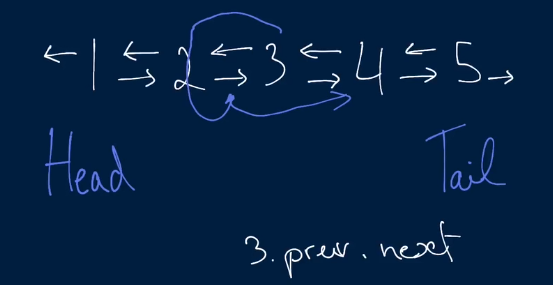 ← 1 ⇄ 2 ⇄ 3 ⇄ 4 ⇄ 5 →
Head Tail
3.prev.next